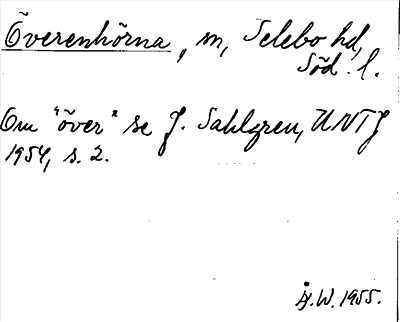 Överenhörna, sn, Selebo hd,
Söd. l.
Om "över" se J. Sahlgren, UNTJ
1954, s. 2.
Å.W. 1955.